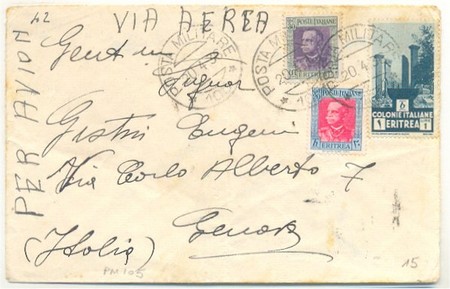 42
VIA AEREA
PER AVION
Gent mo
Signor
Gestri Eugenio
Via Carlo Alberto 7
Genova
(Italia)
PM 105
15
POSTA MILITARE
POSTE ITALIANE
ERITREA
POSTA MILITARE
20.4
POSTE ITALIANE
ERITREA
6
COLONIE ITALIANE
1 ERITREA 1